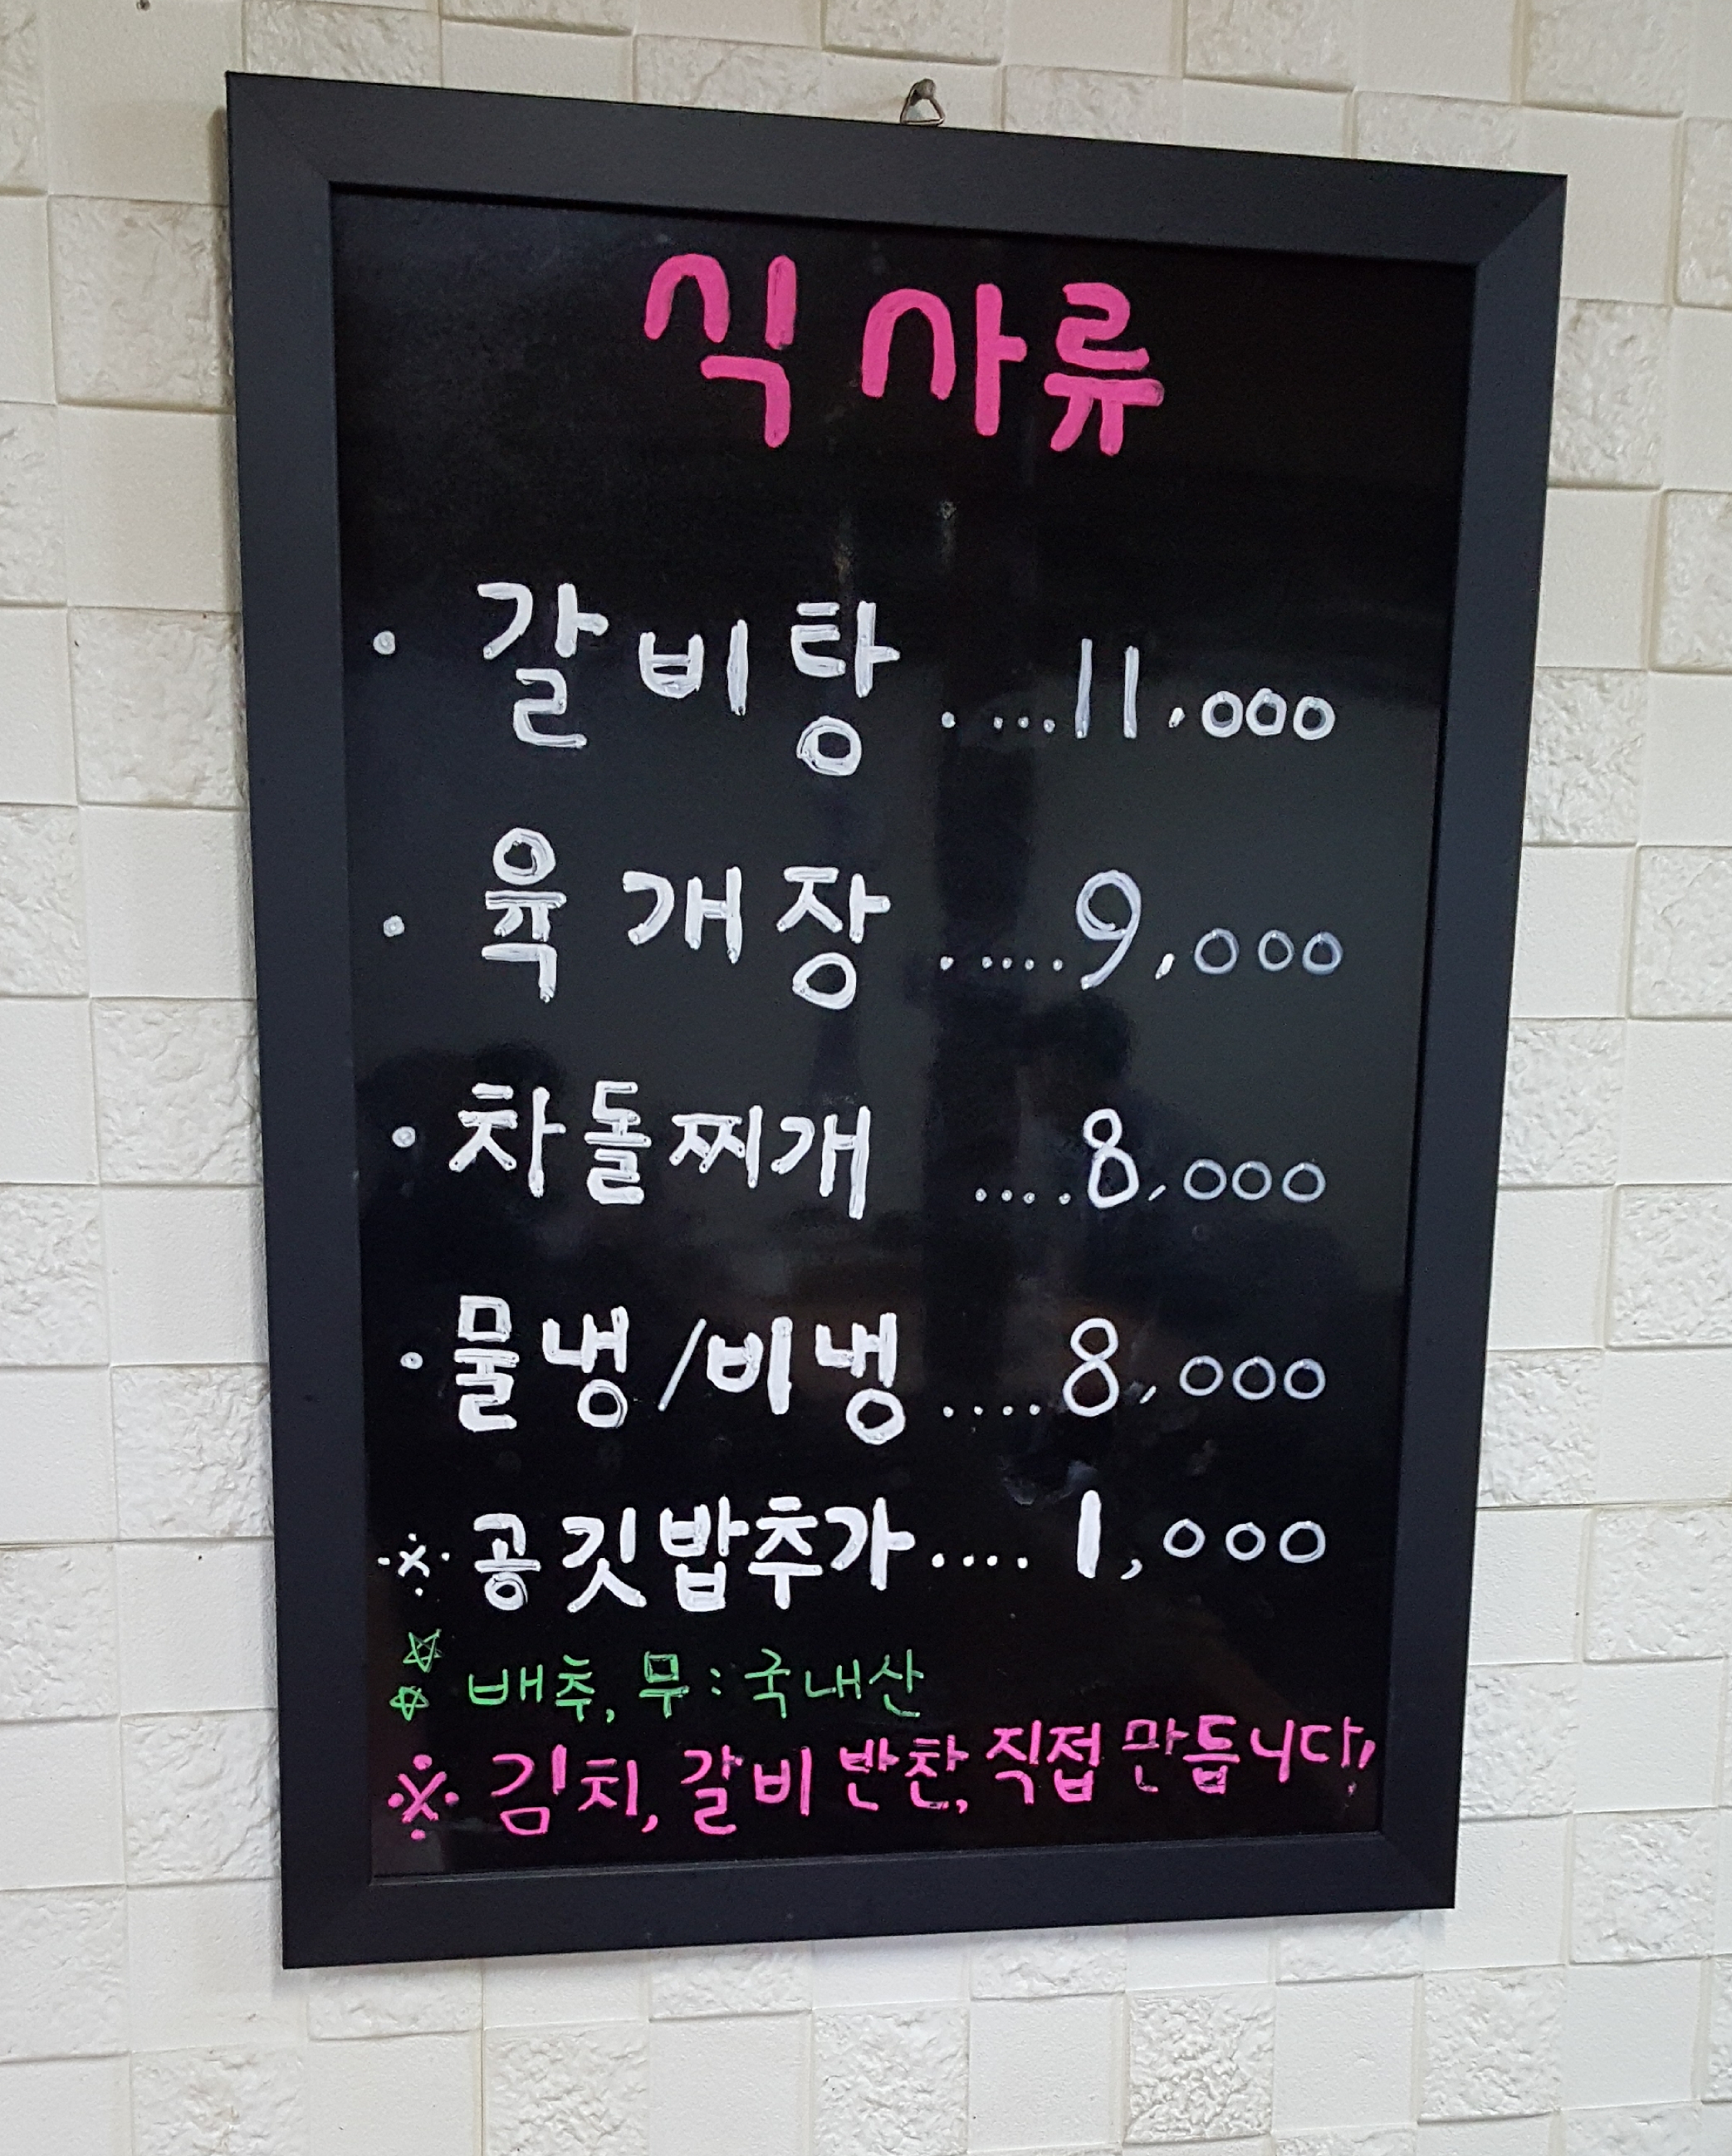 식사류
· 갈비탕 .....11,000
· 육개장 .....9,000
· 차돌찌개 ....8,000
· 물냉/비냉 ....8,000
※ 공깃밥추가.... 1,000
☆☆ 배추, 무 : 국내산
※ 김치, 갈비 반찬, 직접 만듭니다!